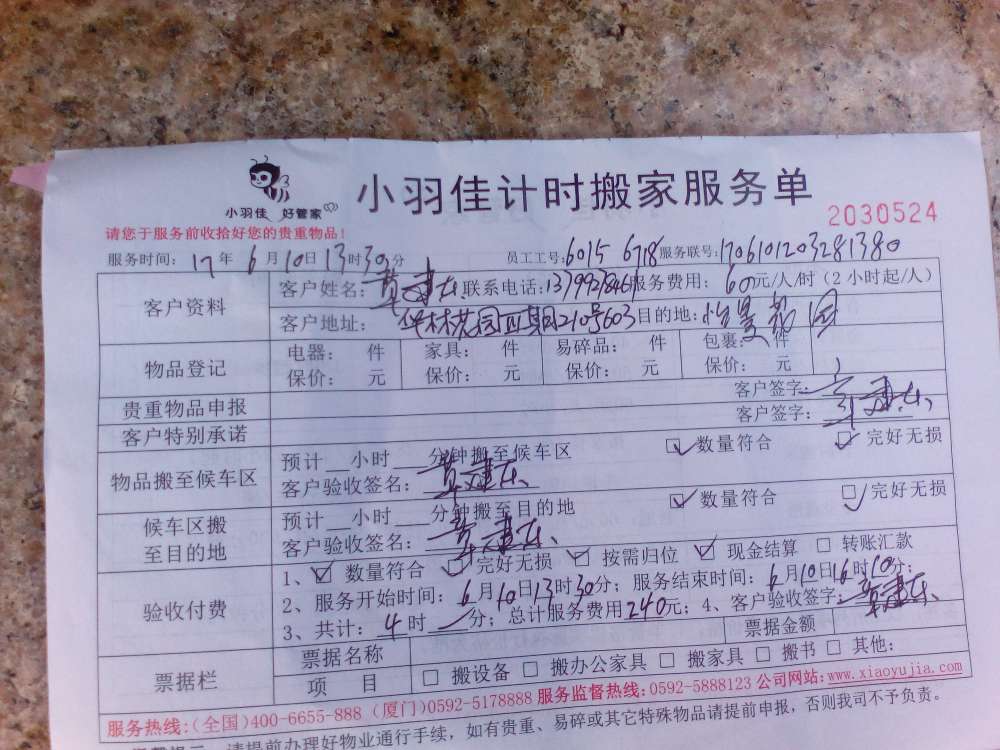 小羽佳 好管家
小羽佳计时搬家服务单
2030524
请您于服务前收拾好您的贵重物品!
服务时间: 17年 6月10日13时30分 员工工号:6015 6718 服务联号:1706101203281380
客户资料 客户姓名: 联系电话: 服务费用: 60元/人/时(2小时起/人)
客户地址: 华林花园四期210号603 目的地:
物品登记 电器: 件 家具: 件 易碎品: 件 包裹: 件
保价: 元 保价: 元 保价: 元 保价: 元
贵重物品申报 客户签字:
客户特别承诺 客户签字:
物品搬至候车区 预计__小时___分钟搬至候车区 ☑数量符合 ☑完好无损
客户验收签名:
候车区搬至目的地 预计__小时___分钟搬至目的地 ☑数量符合 ☑完好无损
客户验收签名:
验收付费 1、☑ 数量符合 ☑ 完好无损 ☑ 按需归位 ☑ 现金结算 □ 转账汇款
2、服务开始时间: 6月10日13时30分; 服务结束时间: 6月10日16时10分;
3、共计: 4时 分; 总计服务费用240元; 4、客户验收签字:
票据栏 票据名称 票据金额
项 目 □ 搬设备 □ 搬办公家具 □ 搬家具 □ 搬书 □ 其他:
服务热线:(全国)400-6655-888 (厦门)0592-5178888 服务监督热线:0592-5888123 公司网站:www.xiaoyujia.com
请提前办理好物业通行手续, 如有贵重、易碎或其它特殊物品请提前申报, 否则我司不予负责。